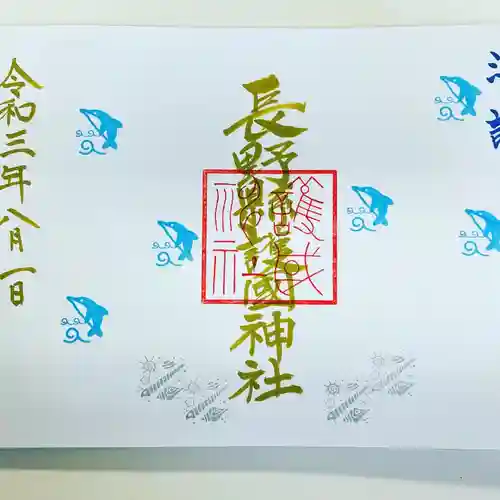 長野縣護國神社
令和三年八月一日